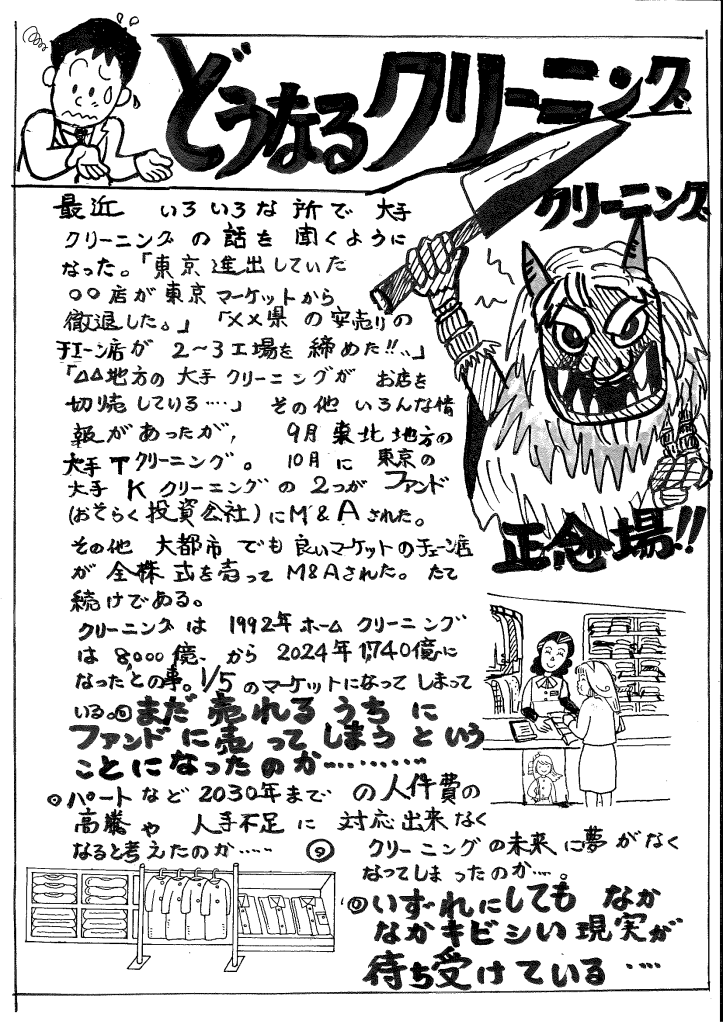 どうなるクリーニング
クリーニング
正念場!!
最近 いろいろな所で 大手
クリーニングの話を聞くように
なった。「東京進出していた
○○店が東京マーケットから
撤退した。」「××県の安売りの
チェーン店が 2〜3工場を締めた!!…」
「△△地方の大手クリーニングが お店を
切売している‥‥」 その他 いろんな情
報があったが、 9月東北地方の
大手Tクリーニング。 10月に 東京の
大手Kクリーニングの2つが ファンド
(おそらく投資会社)にM&Aされた。
その他 大都市でも良いマーケットのチェーン店
が 全株式を売ってM&Aされた。たて
続けである。
クリーニングは 1992年ホームクリーニング
は8,000億、から 2024年1,740億に
なったとの事。1/5のマーケットになってしまって
いる。◎まだ売れるうちに
ファンドに売ってしまうという
ことになったのか‥‥‥‥‥
◎パートなど2030年までの人件費の
高騰や 人手不足に 対応出来なく
なると考えたのか‥‥
◎クリーニングの未来に夢がなく
なってしまったのか‥‥。
◎いずれにしても なか
なかキビシい現実が
待ち受けている‥‥